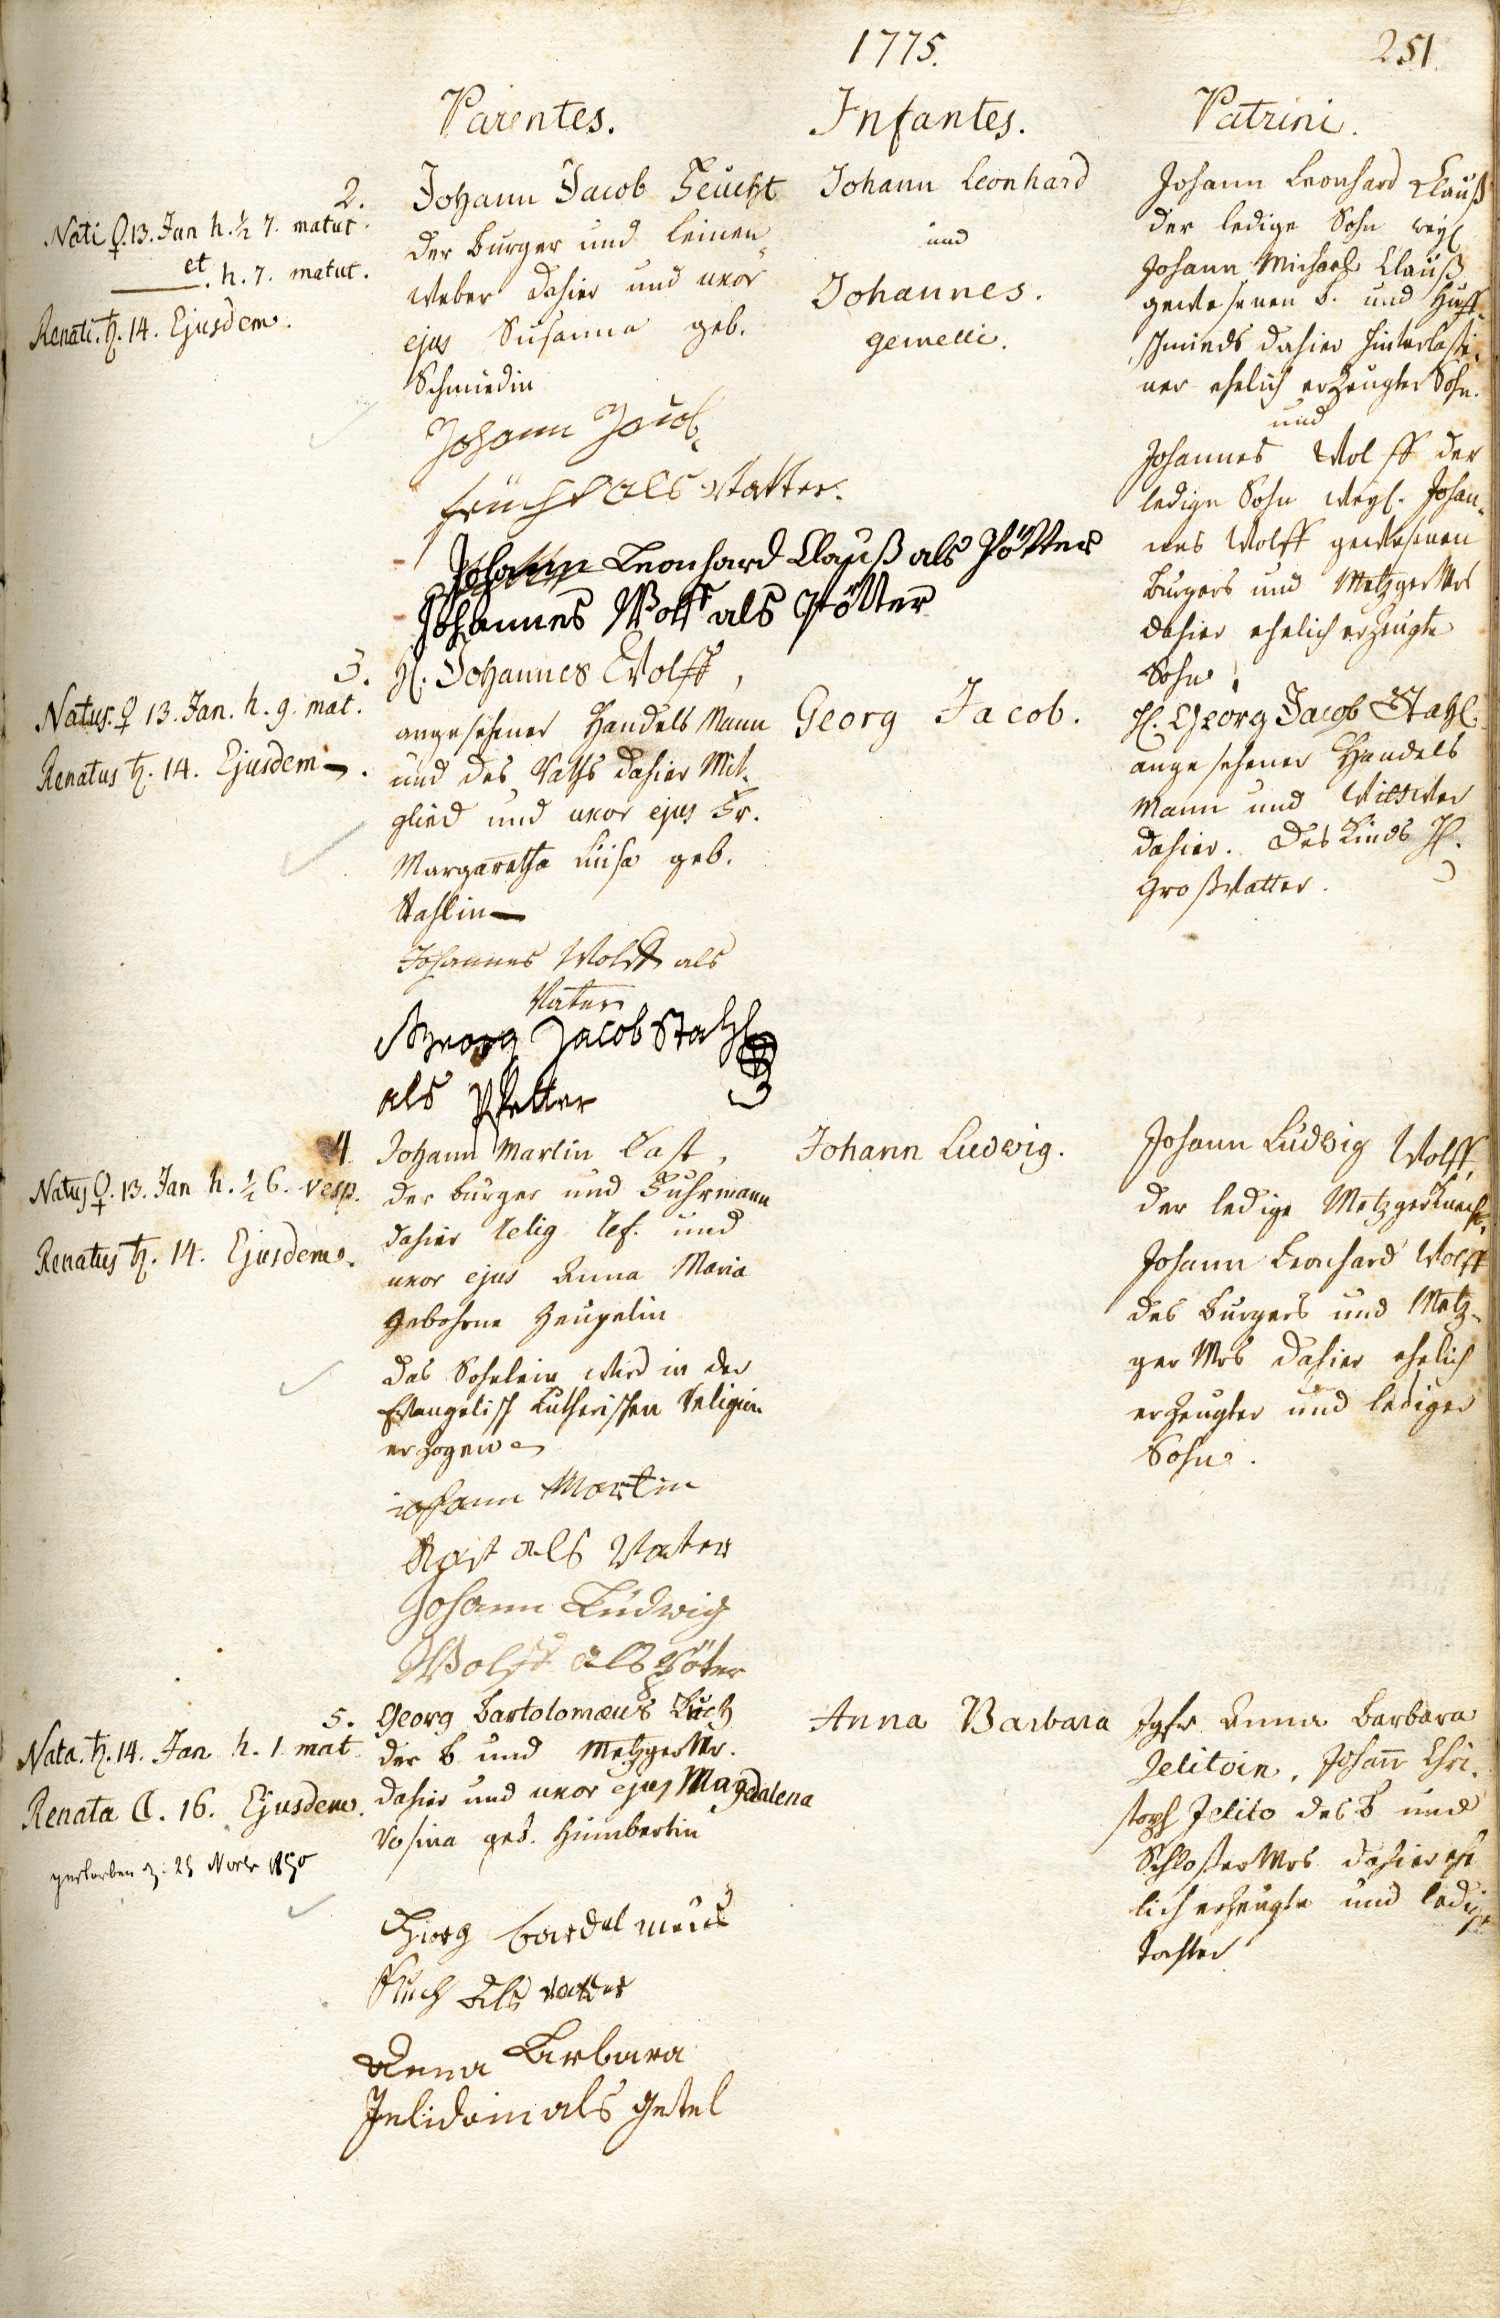 1775.
251.
Parentes.
Infantes.
Patrini.
2.
Nati ♀. 13. Jan h. ½ 7. matut.
et. h. 7. matut.
Renati. ♄. 14. Ejusdem.
Johann Jacob Feucht
der Burger und Leinen„
weber dahier und uxor
ejus Susanna geb.
Schmiedin
Johann Jacob
als Vatter.
Johann Leonhard Clauß als Pötter
Johannes Wolff als Pötter
Johann Leonhard
und
Johannes.
gemelli.
Johann Leonhard Clauß
der ledige Sohn weyl
Johann Michael Clauß
gewesenen B. und Huff„
schmieds dahier hinterlaße„
ner ehelich erzeugter Sohn.
und
Johannes Wolff der
ledige Sohn weyl. Johan„
nes Wolff gewesenen
Burgers und Metzger Mrs
dahier ehelich erzeugte
Sohn.
3.
Natus. ♀ 13. Jan. h. 9. mat.
Renatus ♄. 14. Ejusdem.
H. Johannes Wolff,
angesehner Handels Mann
und des Raths dahier Mit„
glied und uxor ejus Fr.
Margaretha Luisa geb.
Stahlin
Johannes Wolff als
Vater
Georg Jacob Stahl
als Pfetter
Georg Jacob.
H. Georg Jacob Stahl
angesehener Handels
Mann und Wittwer
dahier. Des Kinds H.
Großvatter.
4
Natus ♀. 13. Jan h. ½ 6. vesp.
Renatus ♄. 14. Ejusdem.
Johann Martin Rast,
der burger und Fuhrmann
dahier relig ref. und
uxor ejus Anna Maria
gebohrne
das Sohnlein wird in der
Evangelisch Lutherischen Religion
erzogen
iohann Martin
Rast als Vater
Johann Ludwig
Wolff als Pöter
Johann Ludwig.
Johann Ludwig Wolff,
der ledige Metzgerknecht,
Johann Leonhard Wolff
des Burgers und Metz„
ger Mrs dahier ehelich
erzeugter und lediger
Sohn.
5.
Nata. ♄. 14. Jan h. 1 mat
Renata ☾. 16. Ejusdem.
gestorben d. 25 Novbr 1850
Georg Bartolomæus
der B und Metzger Mr.
dahier und uxor ejus Magdalena
Rosina geb. Humbertin
als vatter
Anna Barbara
Jelidoin als Getel
Anna Barbara
Jgfr Anna Barbara
Jelitoin, Johann Chri„
stoph Jelito des B und
Schloßer Mrs dahier ehe
lich erzeugte und ledige
tochter